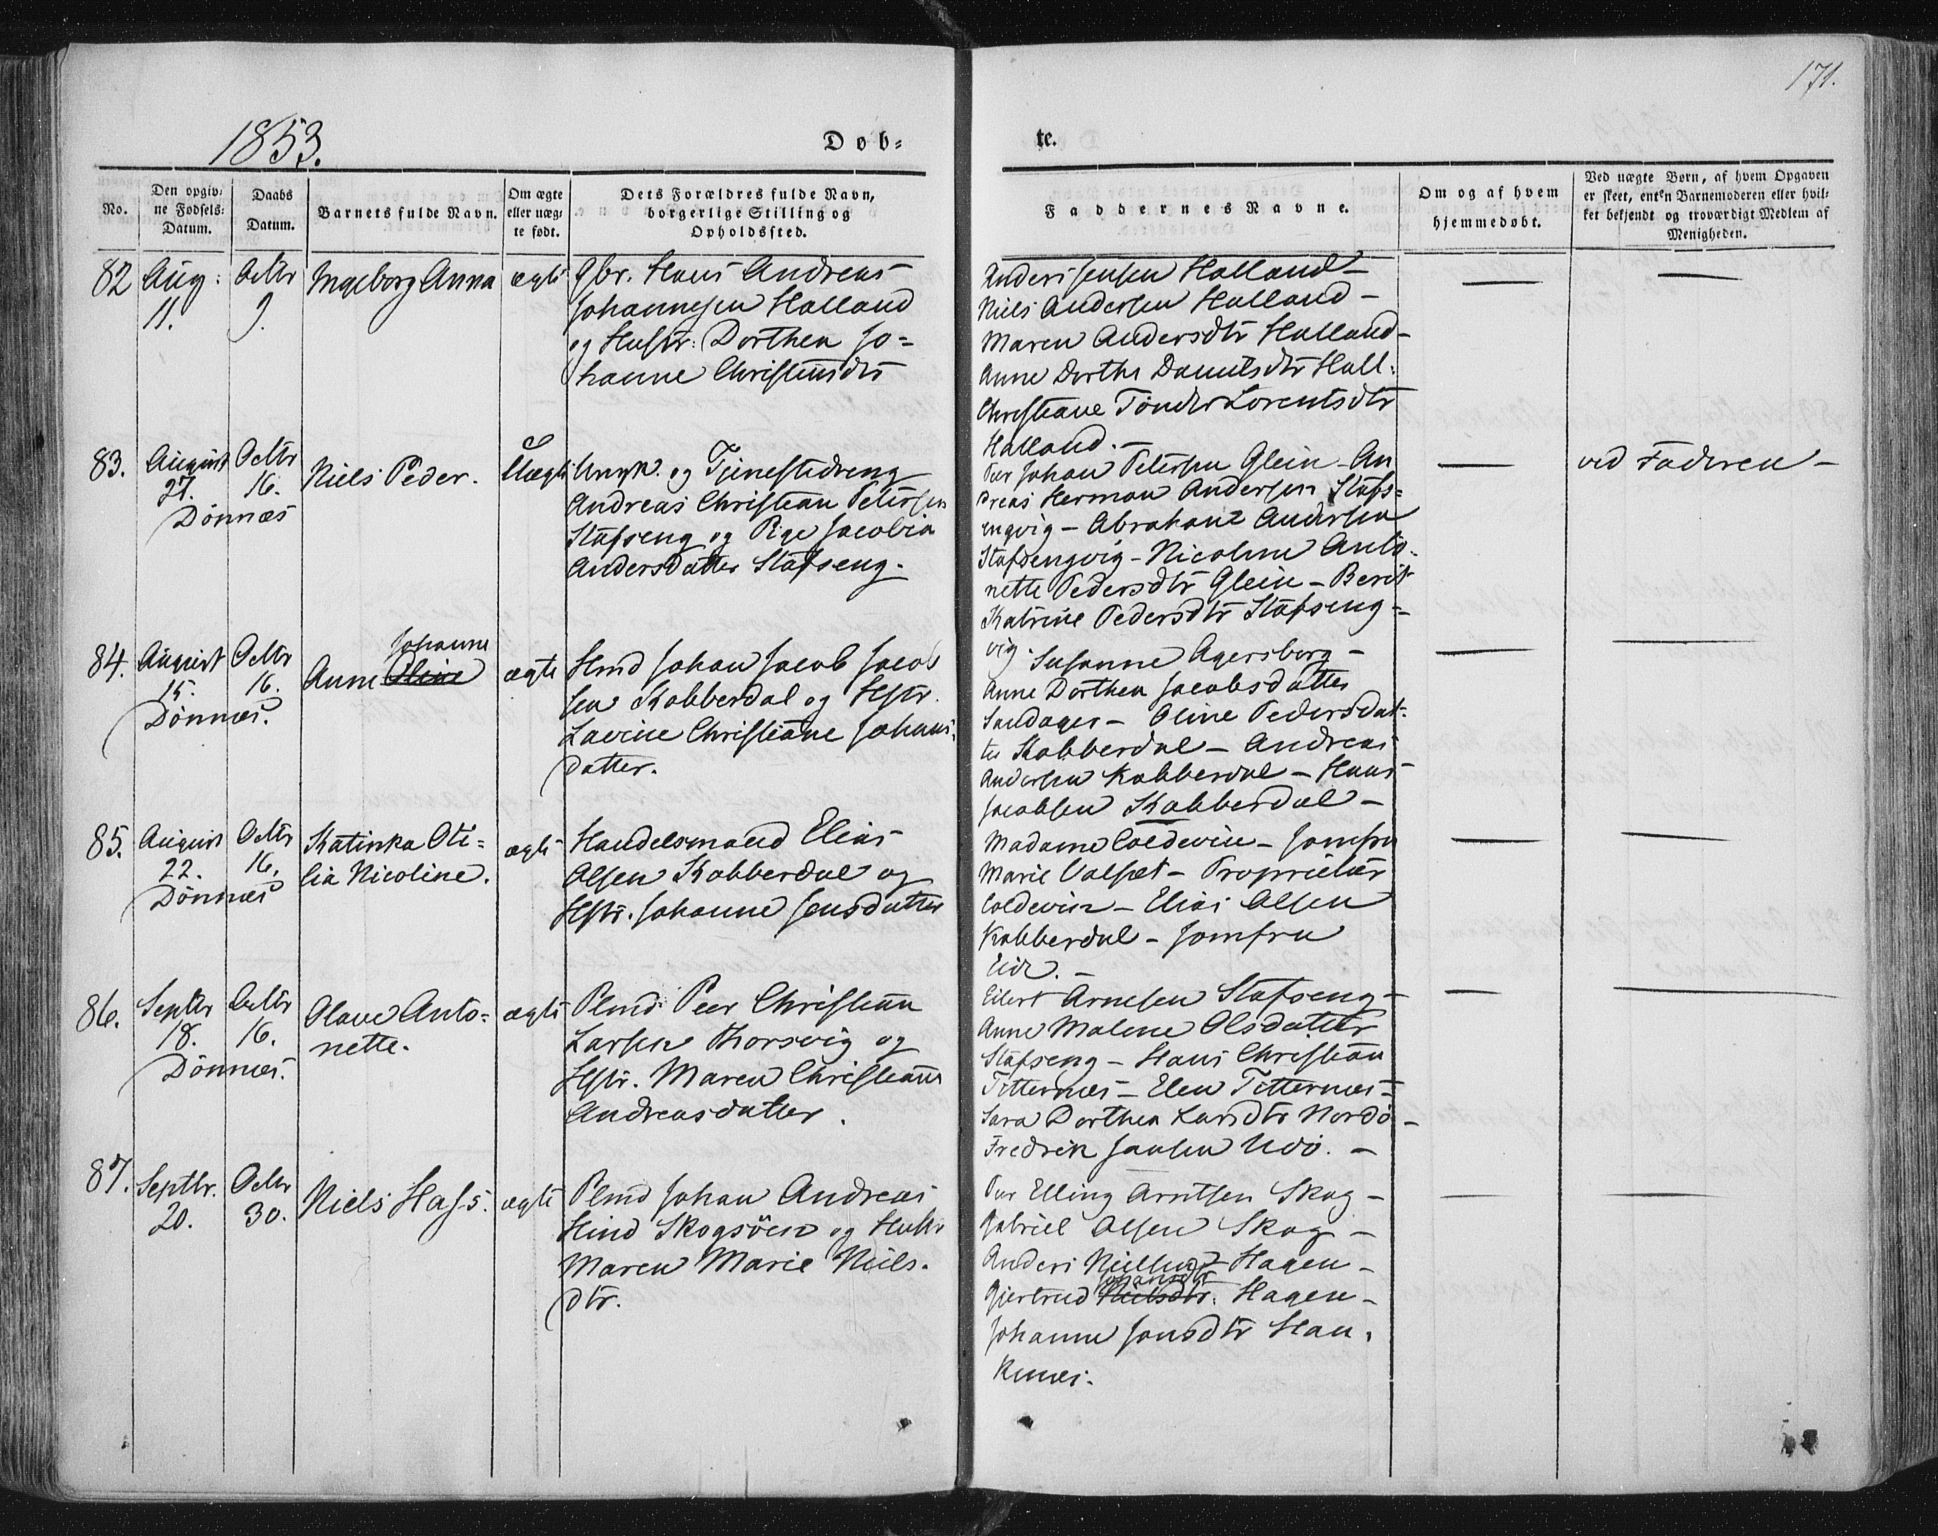 171.
1853.
Døb-
te.
No.
Den opgiv-
ne Fødsels-
Datum.
Daabs
Datum.
Barnets fulde Navn.
Om ægte
eller uæg-
te født.
Dets Forældres fulde Navn,
borgerlige Stilling og
Opholdssted.
Faddernes Navne.
Om og af hvem
hjemmedøbt.
Ved uægte Børn, af hvem Opgaven
er skeet, enten Barnemoderen eller hvil-
ket bekjendt og troværdigt Medlem af
Menigheden.
82
Aug:
11.
Octbr
9.
Ingeborg Anna
ægte
Gbr. Hans Andreas
Johannesen Halland
og Hustr: Dorthea Jo-
hanne Christensdtr
Anders Jensen Halland –
Niels Andersen Halland –
Maren Andersdtr Halland –
Anne Dorthe Danielsdtr Hall.
Christiane Tønder Lorentsdtr
Halland. –
—
—
83.
August
27.
Dønnæs
Octbr
16.
Niels Peder.
Uægte
Ungk. og Tjenestedreng
Andreas Christian Petersen
Stafseng og Pige Jacobia
Andersdatter Stafseng.
Per Johan Petersen Glein – An
dreas Herman Andersen Stafs-
engvig – Abraham Andersen
Stafsengvig – Nicoline Anto-
nette Pedersdtr Glein – Berit
Katrine Pedersdtr Stafseng-
vig.
—
ved Faderen –
84.
August
15.
Dønnæs.
Octbr
16.
Johanne
Anne Oline
ægte
Hmd Johan Jacob Jacob
sen Kobberdal og Hstr.
Lavine Christiane Johans-
datter.
Susanne Agersborg –
Anne Dorthea Jacobsdatter
Sandager – Oline Pedersdat-
ter Kobberdal – Andreas
Andersen Kobberdal – Hans
Jacobsen Kobberdal –
—
—
85.
August
22.
Dønnæs
Octbr
16.
Katinka Oti-
lia Nicoline.
ægte
Handelsmand Elias
Olsen Kobberdal og
Hstr. Johanne Jensdatter
Madame Coldevin – Jomfru
Marie Valset – Proprietær
Coldevin – Elias Olsen
Kobberdal – Jomfru
—
—
86.
Septbr
18.
Dønnæs.
Octbr
16.
Olave Anto-
nette.
ægte
Plmd Peer Christian
Larsen Thorsvig og
Hstr. Maren Christiane
Andreasdatter.
Eilert Arnesen Stafseng –
Anne Malene Olsdatter
Stafseng – Hans Christian
Titternæs – Elen Titternæs –
Sara Dorthea Larsdtr Nordø –
Fredrik Jansen –
—
—
87.
Septbr.
20.
Octbr
30.
Niels Hass.
ægte
Plmd Johan Andreas
Hind Skogsøen og Hustr
Maren Marie Niels-
dtr.
Per Elling Arntsen Skog –
Gabriel Olsen Skog –
Anders Nielsen Hagen –
Johansdtr
Gjertrud Nielsdtr. Hagen –
Johanne Jonsdtr Han-
knæs.
—
—